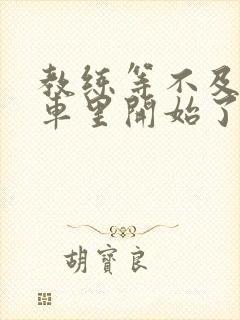 教练等不及
車里開始了
胡寶良